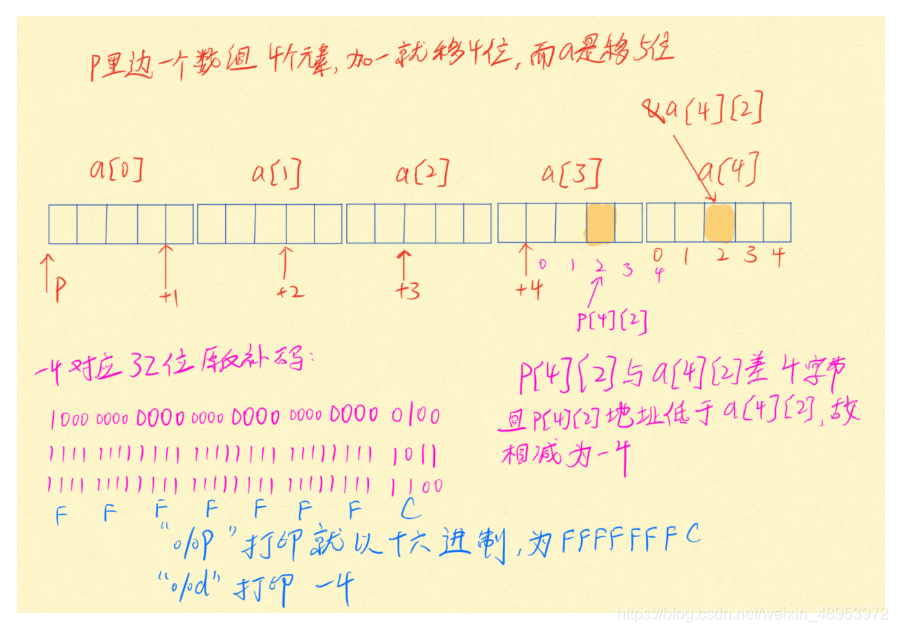 P里边一个数组4个元素,加一就移4位,而a是移5位
&a[4][2]
a[0] a[1] a[2] a[3] a[4]
0 1 2 3 4
0 1 2 3 4
P +1 +2 +3 +4
P[4][2]
-4对应32位原反补码:
1000 0000 0000 0000 0000 0000 0000 0100
1111 1111 1111 1111 1111 1111 1111 1011
1111 1111 1111 1111 1111 1111 1111 1100
F F F F F F F C
P[4][2]与a[4][2]差4字节
且P[4][2]地址低于a[4][2],故
相减为-4
"%P"打印就以十六进制,为FFFFFFFC
"%d"打印 -4
https://blog.csdn.net/weixin_48953972